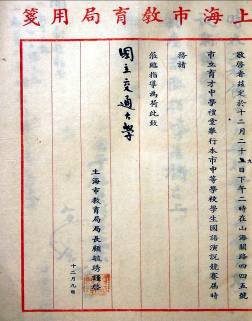 上海市教育局用箋
敬啓者茲定於十二月二十五日下午二時在山海關路四四五號
市立育才中學禮堂舉行本市中等學校學生國語演說競賽屆時
務請
蒞臨指導爲荷此致
國立交通大學
上海市教育局局長顧毓琇謹啓
十二月九日